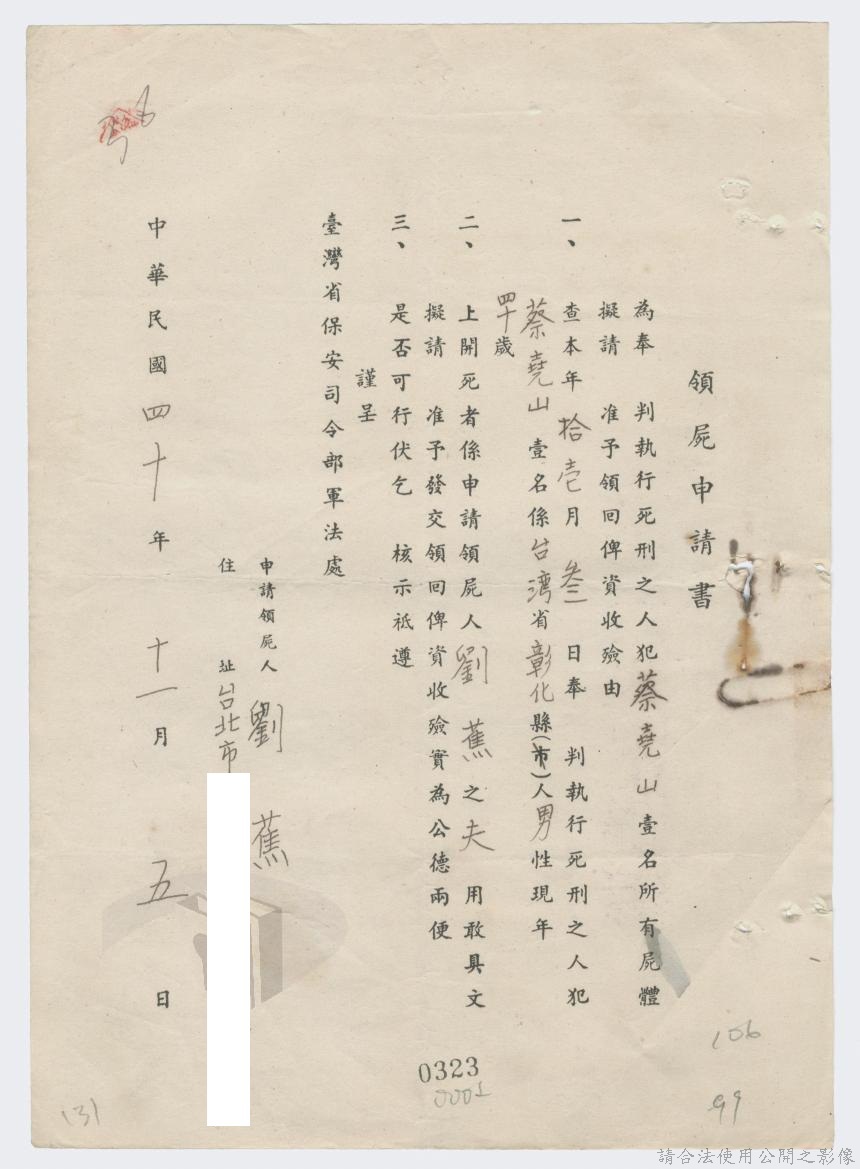 領屍申請書
為奉　判執行死刑之人犯蔡堯山壹名所有屍體
擬請　准予領回俾資收殮由
一、查本年拾壱月叁日奉　判執行死刑之人犯
蔡堯山壹名係台湾省彰化縣(市)人男性現年
四十歲
二、上開死者係申請領屍人劉蕉之夫用敢具文
擬請　准予發交領回俾資收殮實為公德兩便
三、是否可行伏乞　核示祇遵
謹呈
臺灣省保安司令部軍法處
申請領屍人劉蕉
住址台北市
中華民國四十年十一月五日
0323
0001
106
99
131
請合法使用公開之影像